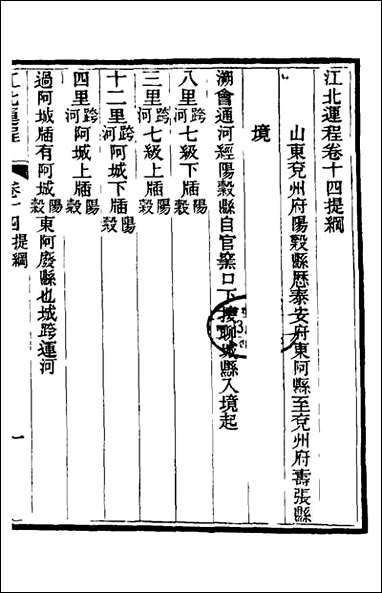 江北運程卷十四提綱
山東兗州府陽穀縣歷泰安府東阿縣至兗州府壽張縣
境
溯會通河經陽穀縣自官窰口下接聊城縣入境起
八里跨河七級下牐陽穀
三里跨河七級上牐陽穀
十二里跨河阿城下牐陽穀
四里跨河阿城上牐陽穀
過阿城牐有阿城陽穀東阿廢縣也城跨運河
江北運程
卷十四提綱
一